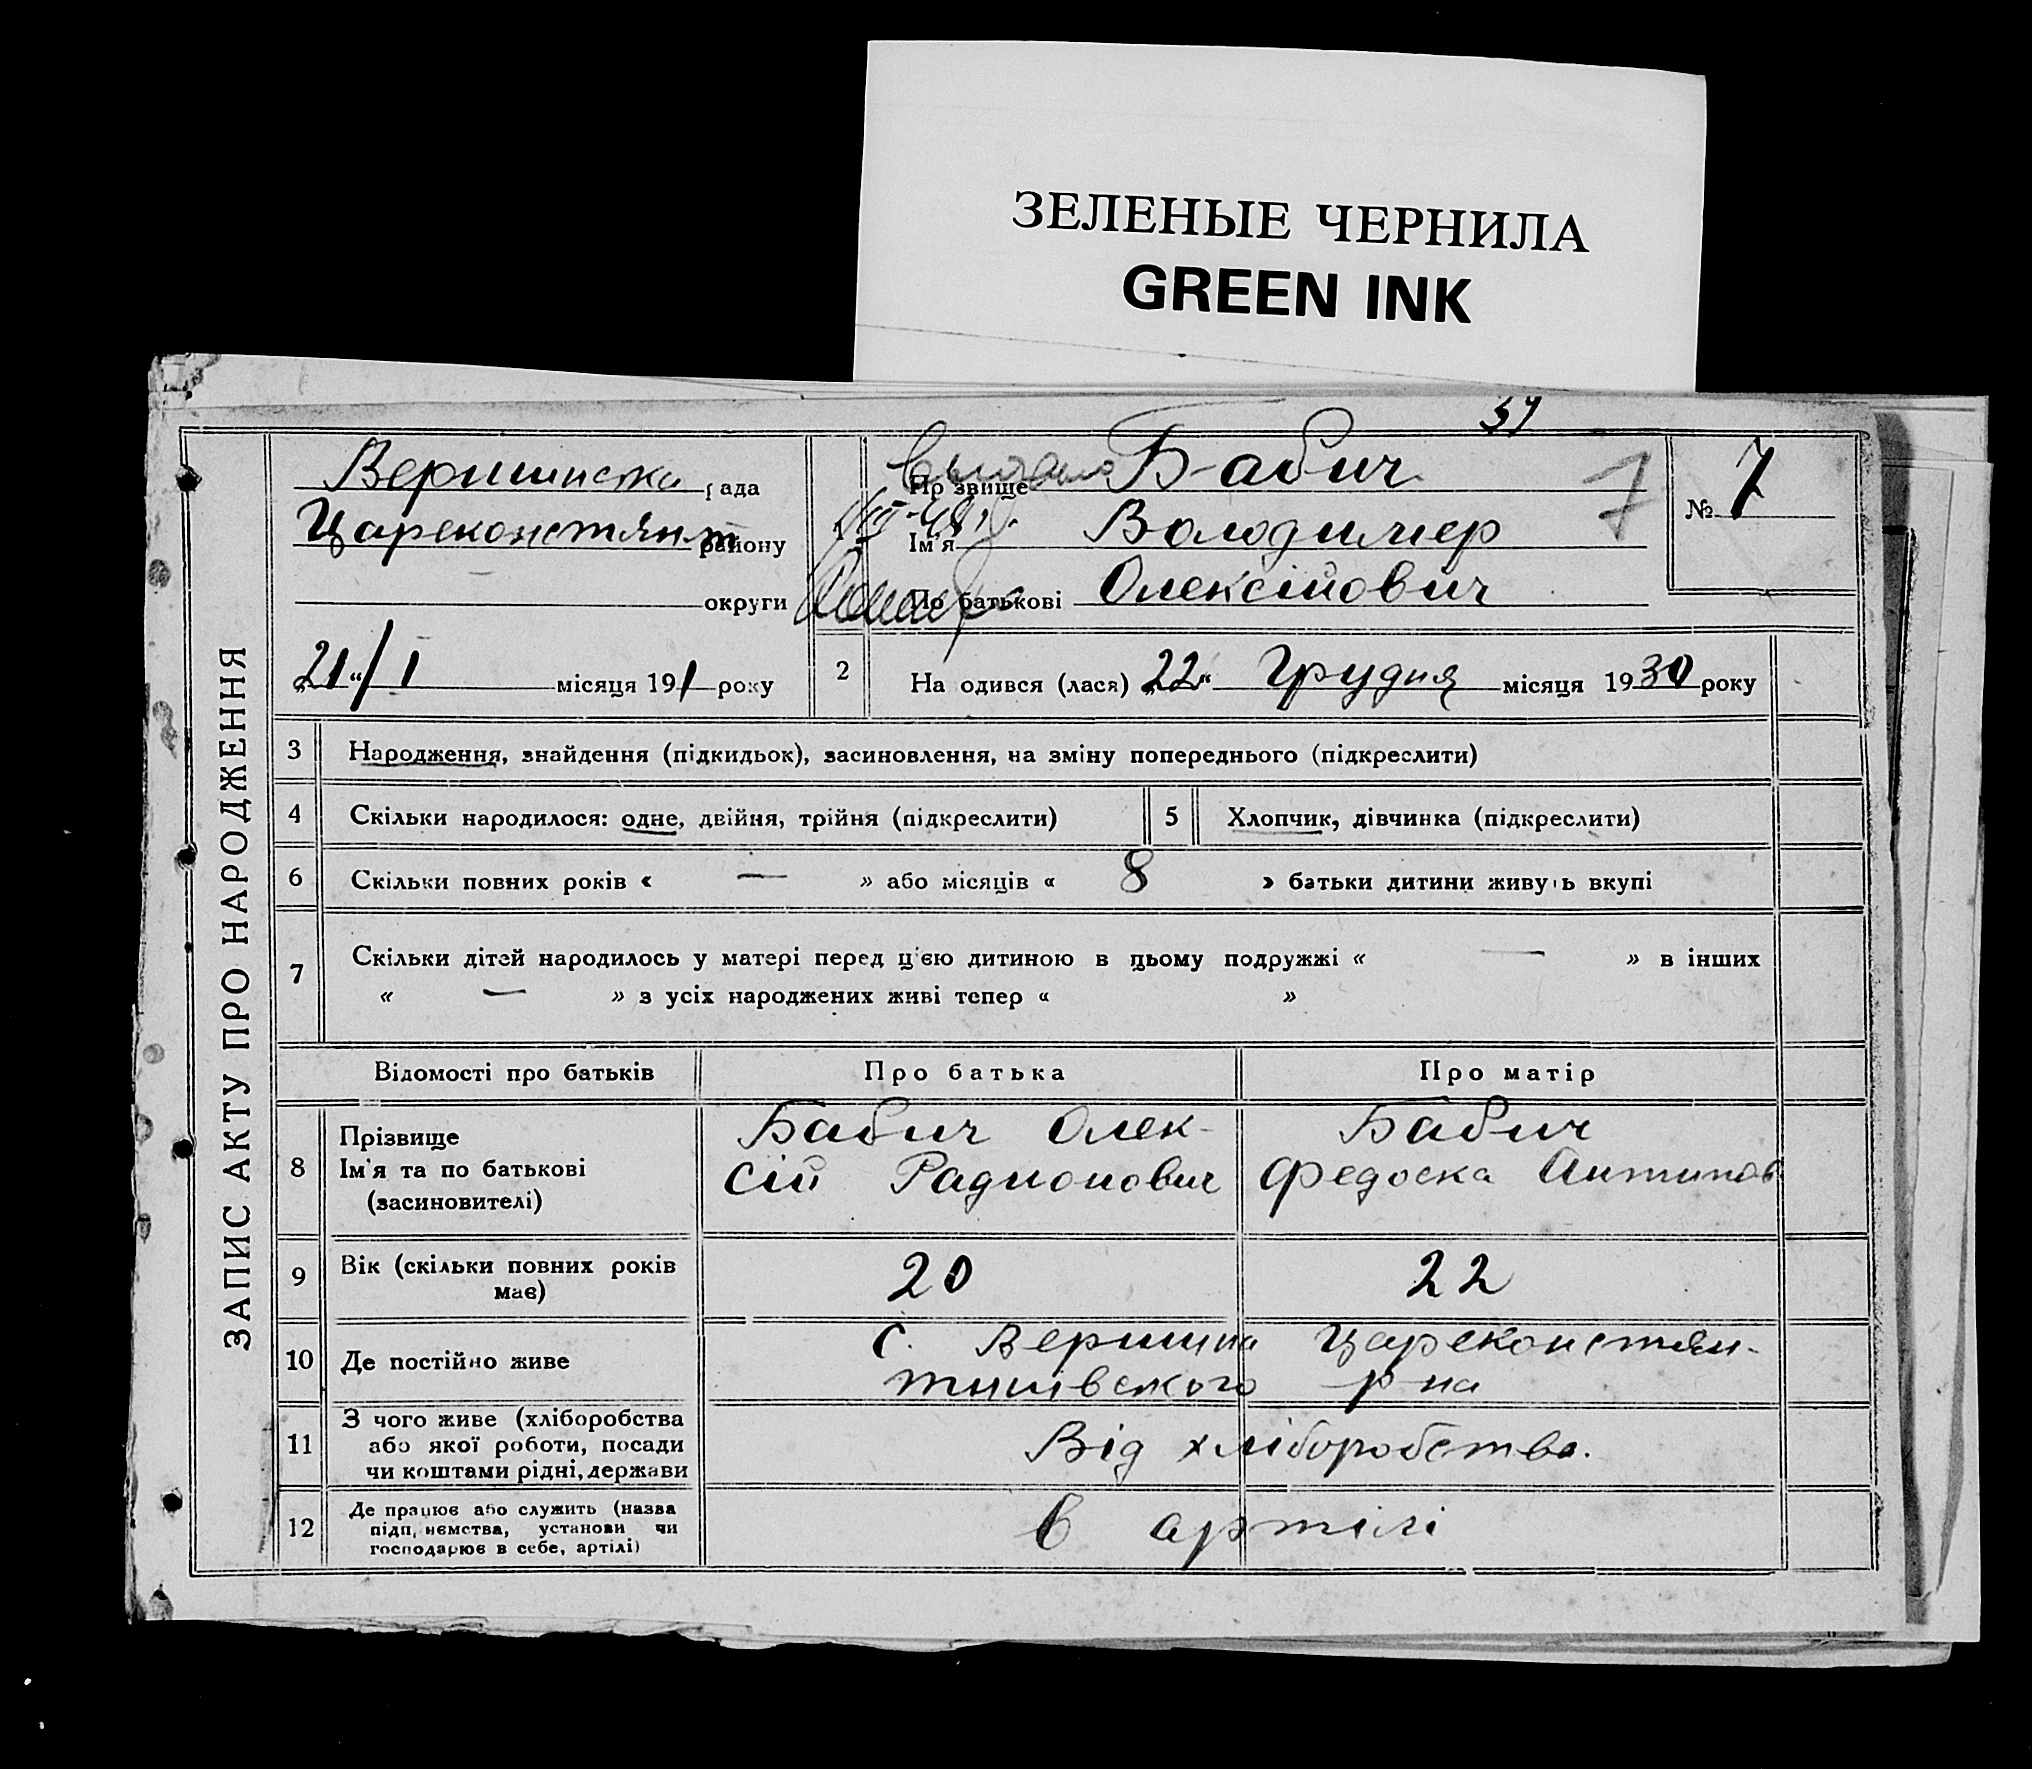 ЗЕЛЕНЫЕ ЧЕРНИЛА
GREEN INK
ЗАПИС АКТУ ПРО НАРОДЖЕННЯ
Вершинска рада
Цареконстянт району
округи
„21“/ I місяця 191 року
Прізвище Бабич
Ім'я Володимер
По батькові Олексійович
7
№ 7
2 На одився (лася) „22“ Грудня місяця 1930 року
3 Народження, знайдення (підкидьок), засиновлення, на зміну попереднього (підкреслити)
4 Скільки народилося: одне, двійня, трійня (підкреслити) 5 Хлопчик, дівчинка (підкреслити)
6 Скільки повних років « — » або місяців « 8 » батьки дитини живуть вкупі
7 Скільки дітей народилось у матері перед ц'єю дитиною в цьому подружжі « — » в інших
« — » з усіх народжених живі тепер « »
Відомості про батьків Про батька Про матір
8 Прізвище
Ім'я та по батькові
(засиновителі)
Бабич Олек-
сій Радионович
Бабич
Федоска Антипов
9 Вік (скільки повних років
має)
20 22
10 Де постійно живе
с. Вершина Цареконстян-
тинівского р-на
11 З чого живе (хліборобства
або якої роботи, посади
чи коштами рідні, держави
Від хліборобства.
12 Де працює або служить (назва
підп, немства, установи чи
господарює в себе, артілі)
в артілі